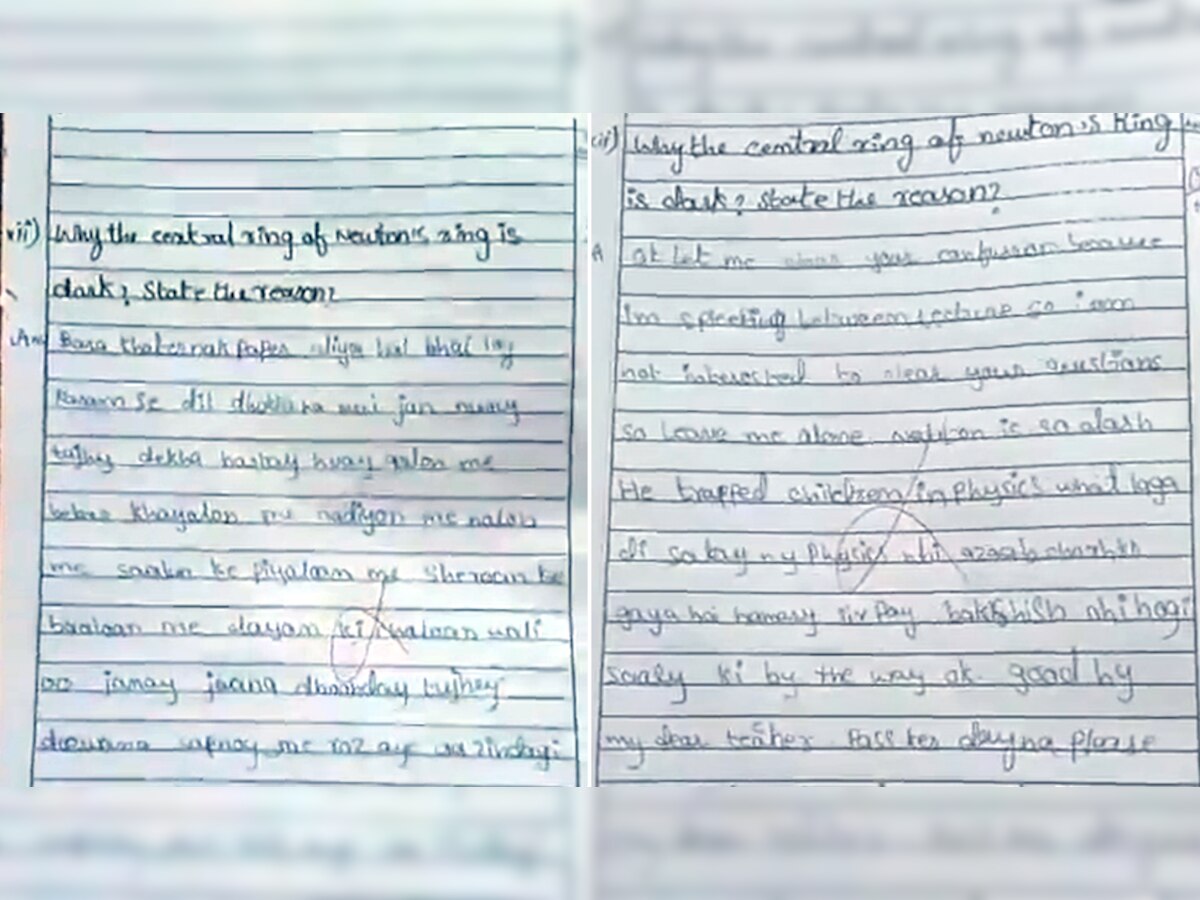 vii) Why the central ring of Newton's ring is
dark? State the reason?
Ans Bara khaternak paper diya hai bhai
kasam se dil dhokha na mai jan
tujhey dekha hastay huay galon me
khayalon me nadiyon me nalon
me saakn ke piyaloon me sheroon ke
baaloon me dayan ki wali
oo janay jaana dhoonday tujhey
deewana sapnay me roz aye zindagi
vii) Why the central ring of newton's Ring
is dark? State the reason?
A ok let me clear your confusion because
Im speeking between lecture so i am
not interested to clear your questians
so leave me alone is so
He trapped children in physics what
di salay ny physics nhi azaab
gaya hai hamary sir pay bakhshish nhi hogi
saaly ki by the way ok good by
my dear teaher Pass ker dayna please